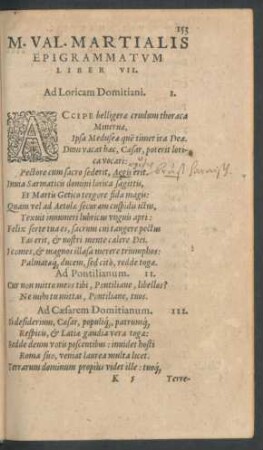 153
M. VAL. MARTIALIS
EPIGRAMMATVM
LIBER VII.
Ad Loricam Domitiani. 1.
ACCIPE belligeræ crudum thoraca
Mineruæ,
Ipsa Medusææ quē timet ira Deæ.
Dum vacat hæc, Cæsar, poterit lori-
ca vocari:
Pectore cum sacro sederit, Aegis erit.
Inuia Sarmaticis domini lorica sagittis,
Et Martis Getico tergore fida magis:
Quam vel ad Aetolæ securam cuspidis ictus,
Texuit innumeri lubricus vnguis apri:
Felix sorte tua es, sacrum cui tangere pectus
Fas erit, & nostri mente calere Dei.
I comes, & magnos illæsa merere triumphos:
Palmatæq́, ducem, sed citò, redde togæ.
Ad Pontilianum. II.
Cur non mitto meos tibi, Pontiliane, libellos?
Ne mihi tu mittas, Pontiliane, tuos.
Ad Cæsarem Domitianum. III.
Si desiderium, Cæsar, populiq́, patrumq́,
Respicis, & Latiæ gaudia vera togæ:
Redde deum votis poscentibus: inuidet hosti
Roma suo, veniat laurea multa licet.
Terrarum dominum propius videt ille: tuoq́,
K 5 Terre-